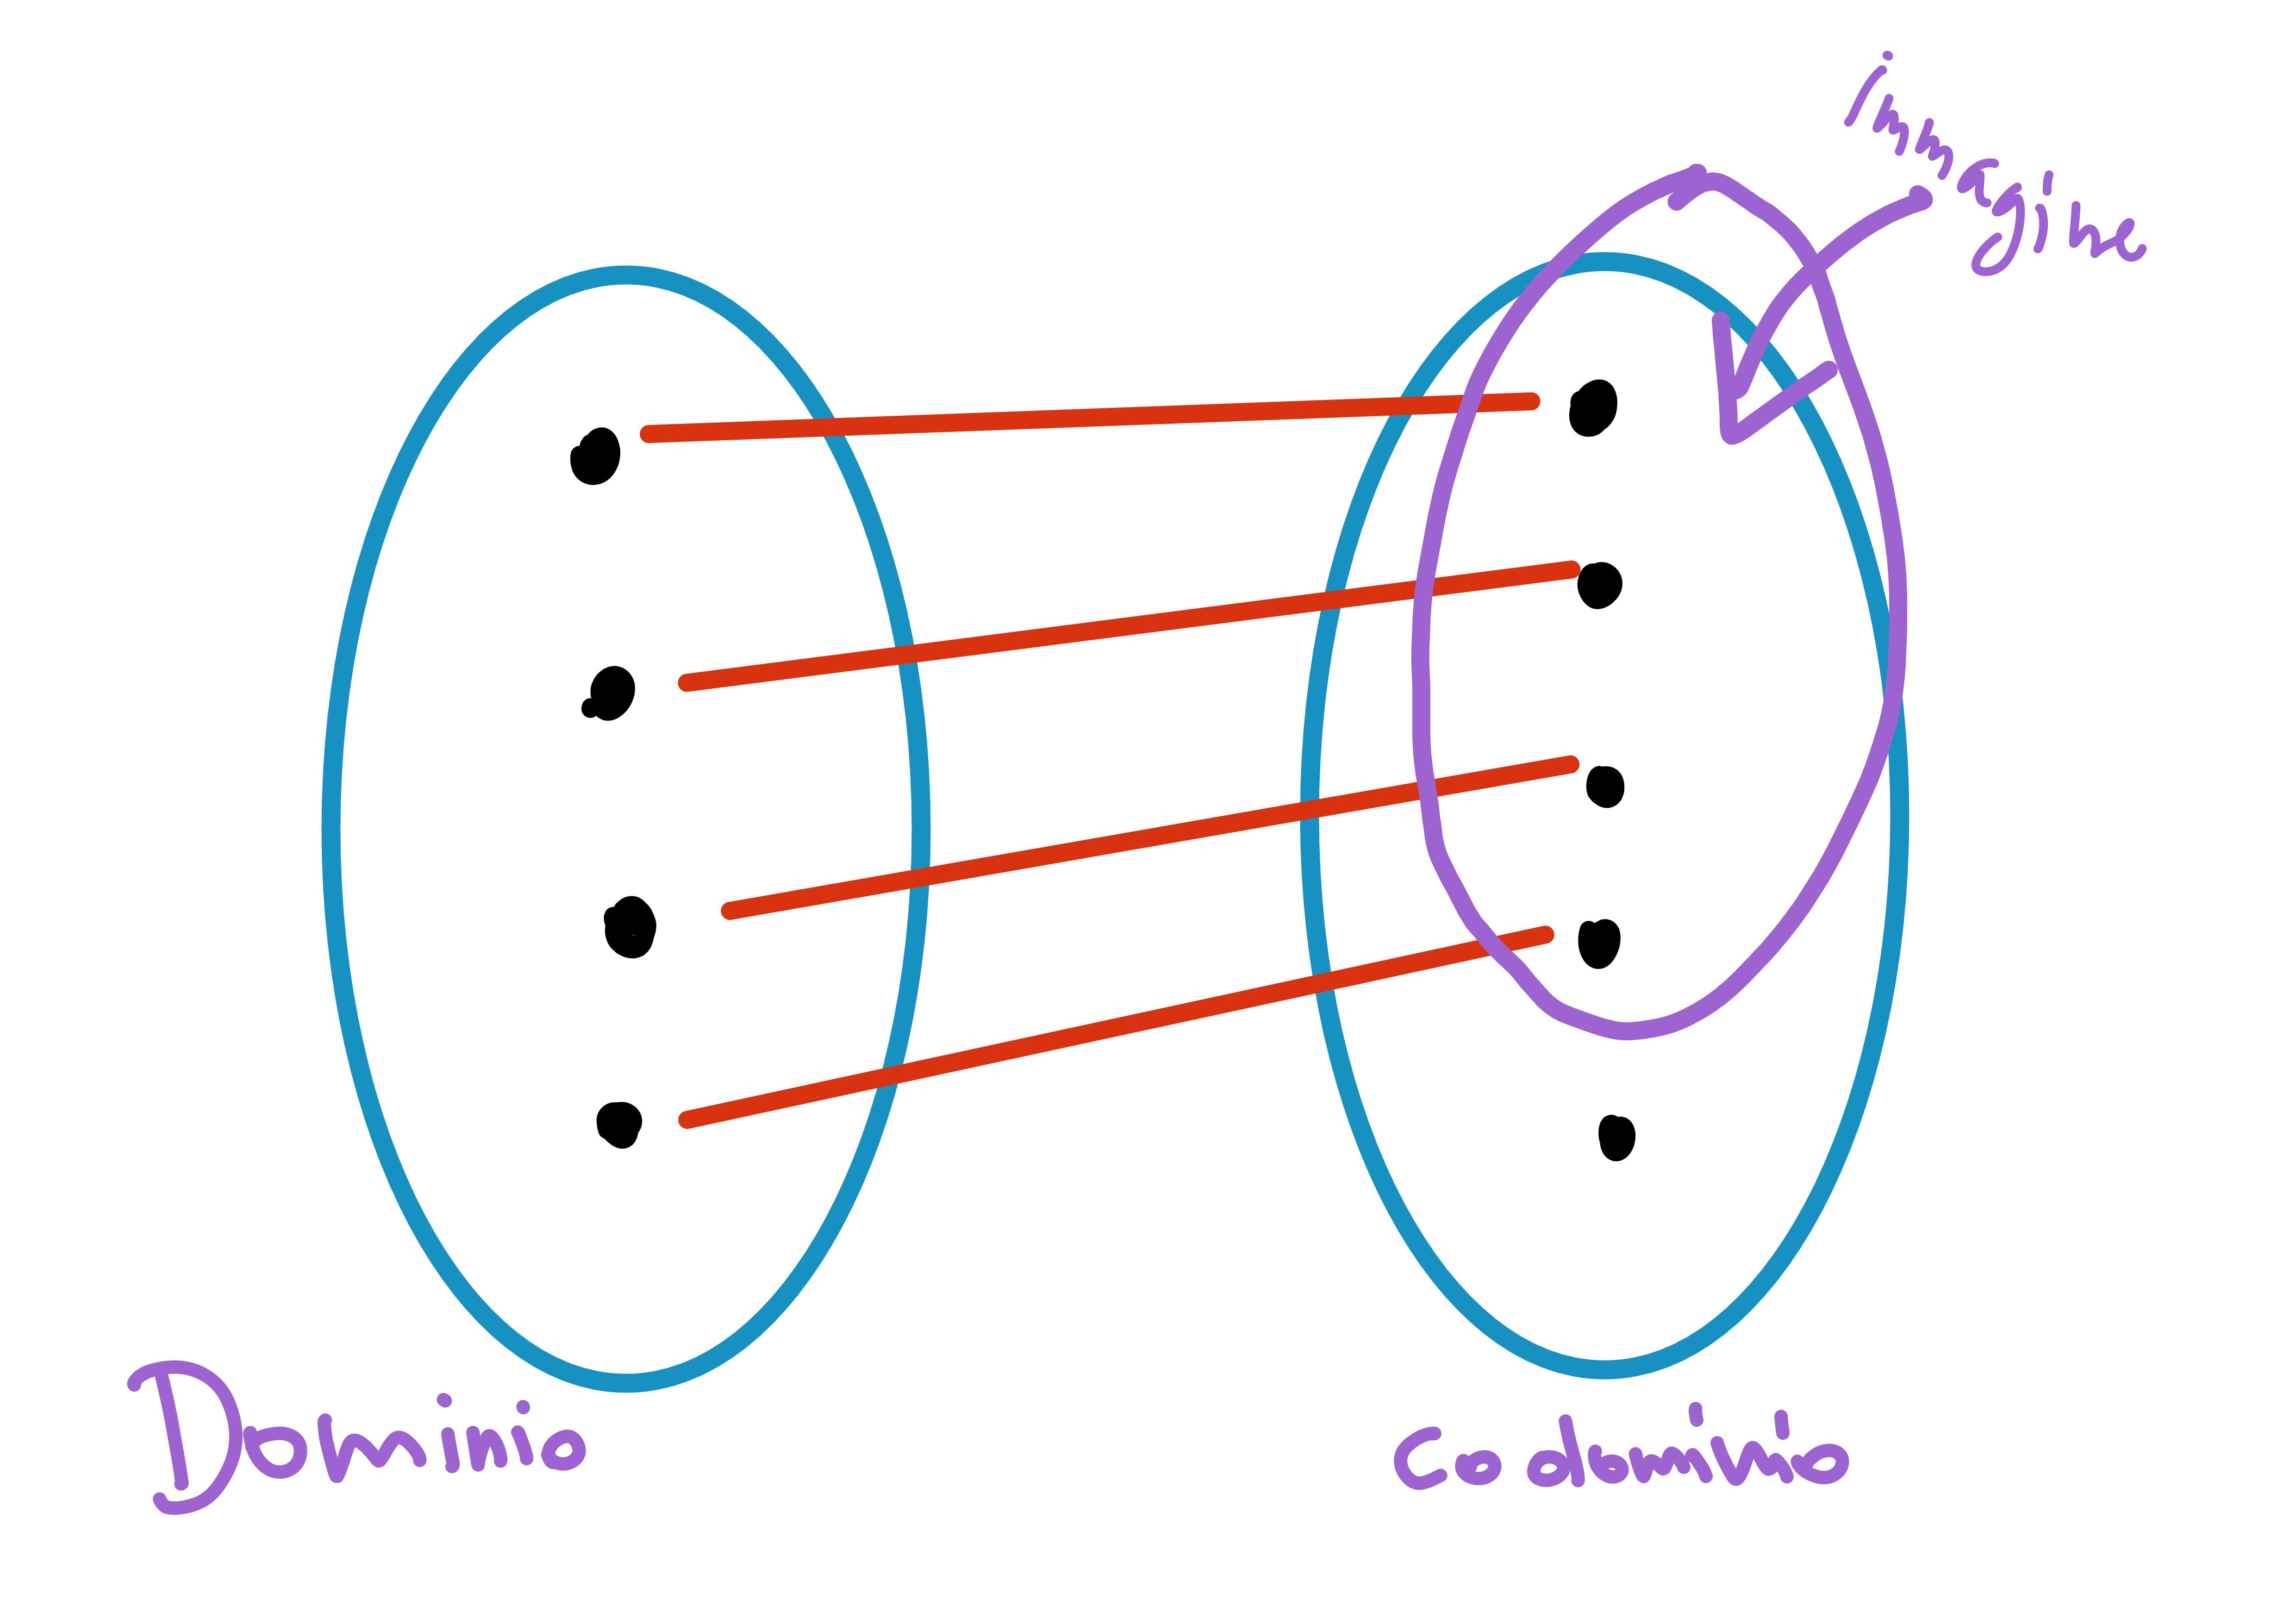 immagine
Dominio
codominio